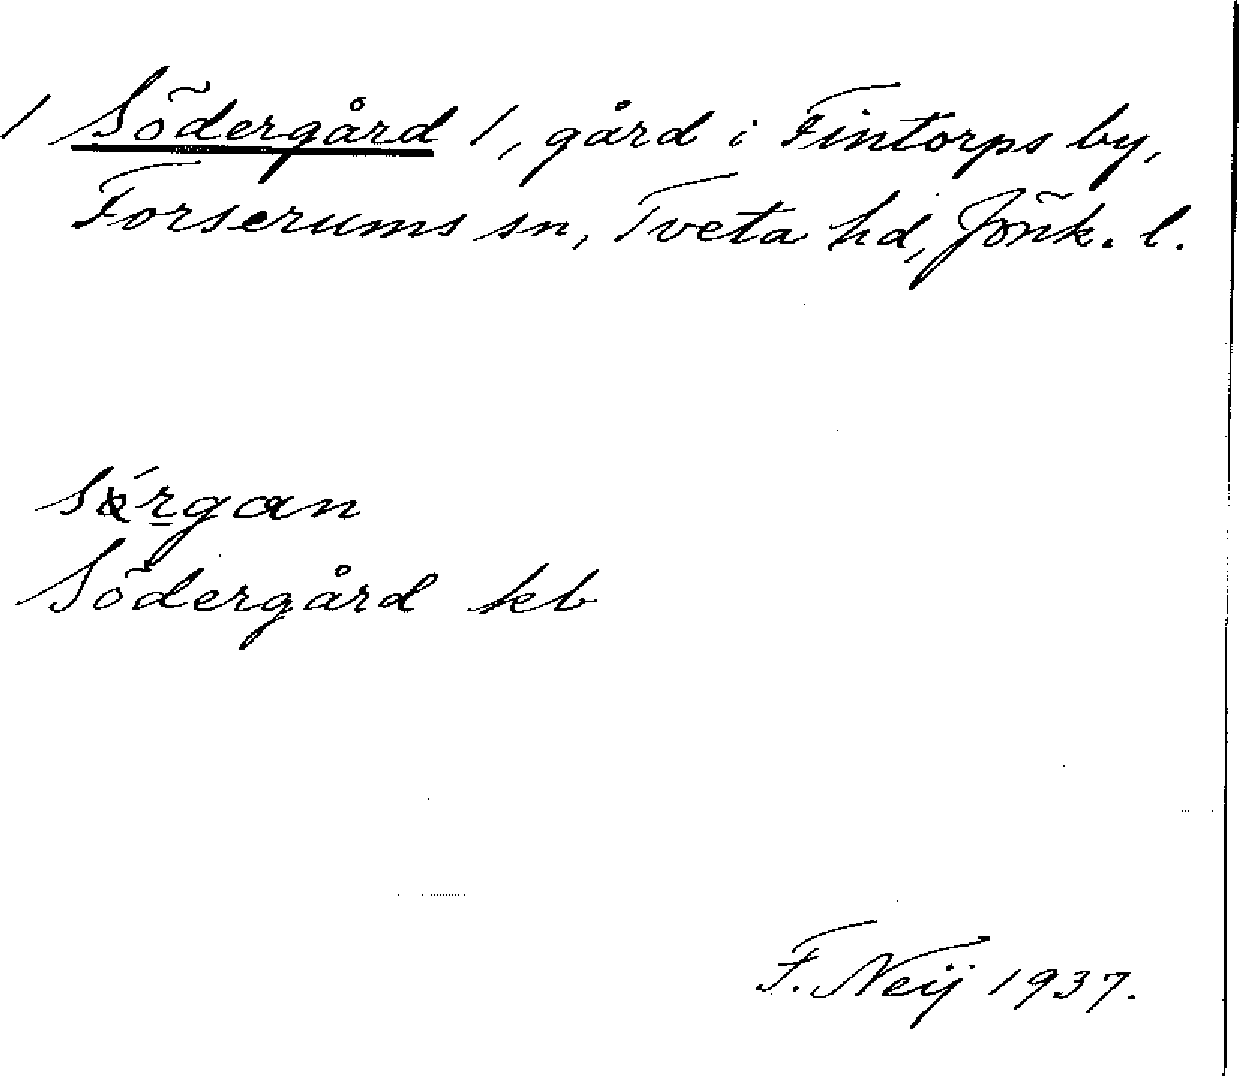 / Södergård /, gård i Fintorps by,
Forserums sn, Tveta hd, Jönk. l.
Södergård kb
F. Neij 1937.